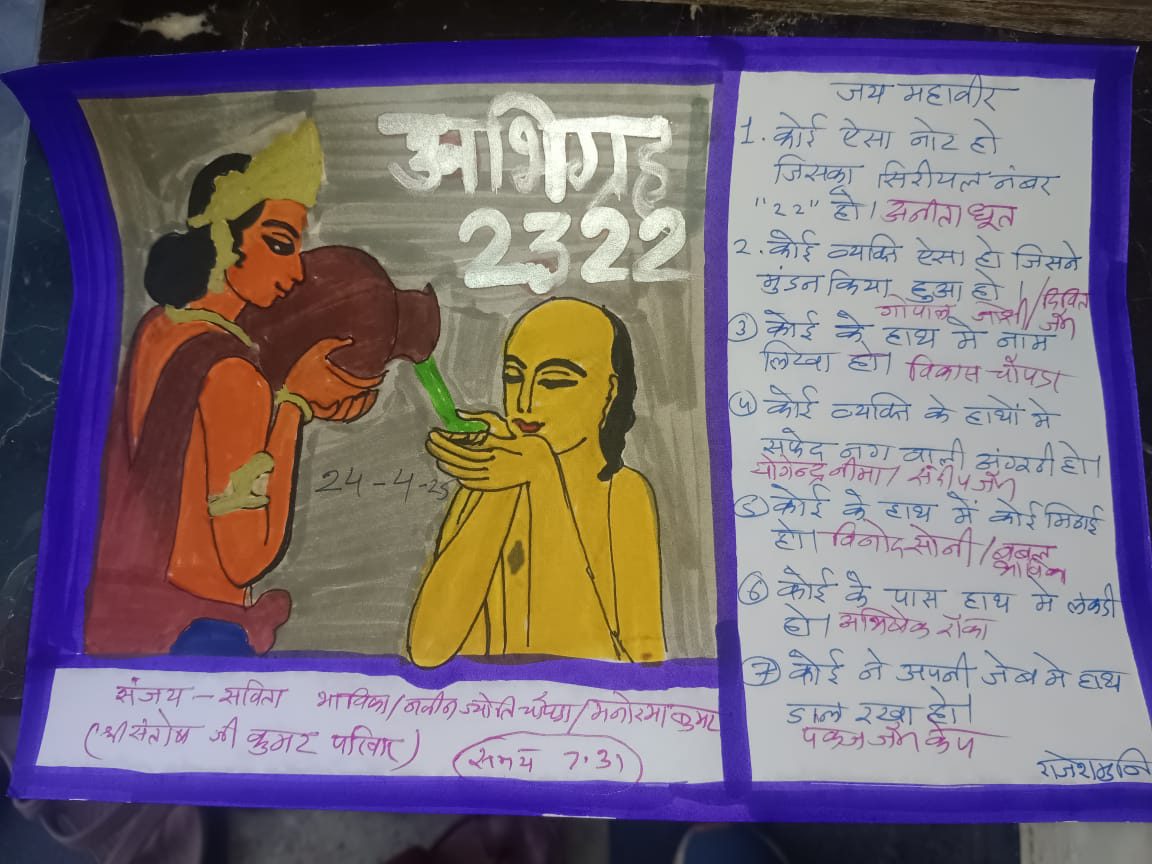 अभिग्रह
2322
24-4-25
संजय - सविता भाविका/नवीन ज्योति चौपडा/मनोरमा कुमट
(श्री संतोष जी कुमट परिवार)
समय 7.31
जय महावीर
1. कोई ऐसा नोट हो
जिसका सिरीयल नंबर
"22" हो। अनीता धूत
2. कोई व्यक्ति ऐसा हो जिसने
मुंडन किया हुआ हो।
गोपाल जोशी/ जैन
③ कोई के हाथ मे नाम
लिखा हो। विकास चौपडा
④ कोई व्यक्ति के हाथों मे
सफेद नग वाली अंगूठी हो।
योगेन्द्र नीमा/ संदीप जैन
⑤ कोई के हाथ में कोई मिठाई
हो। विनोद सोनी/
⑥ कोई के पास हाथ मे लकडी
हो। अभिषेक रॉका
⑦ कोई ने अपनी जेब मे हाथ
डाल रखा हो।
पंकज जैन
राजेशमुनि